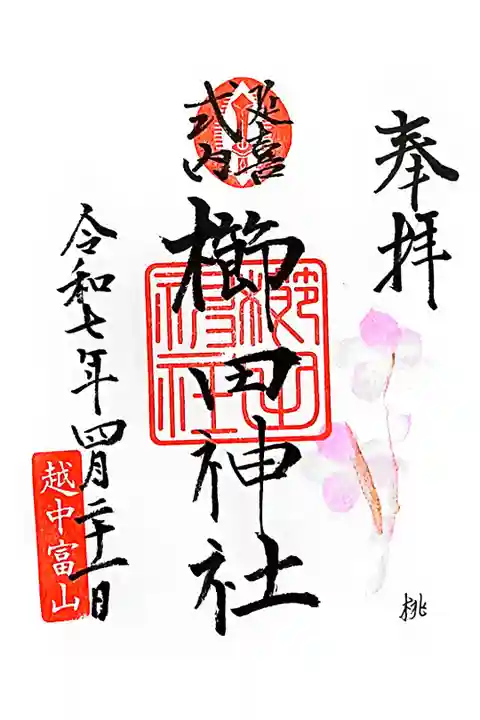 奉拝
延喜
式内
櫛田神社
櫛田
神社
令和七年四月二十一日
越中富山
桃